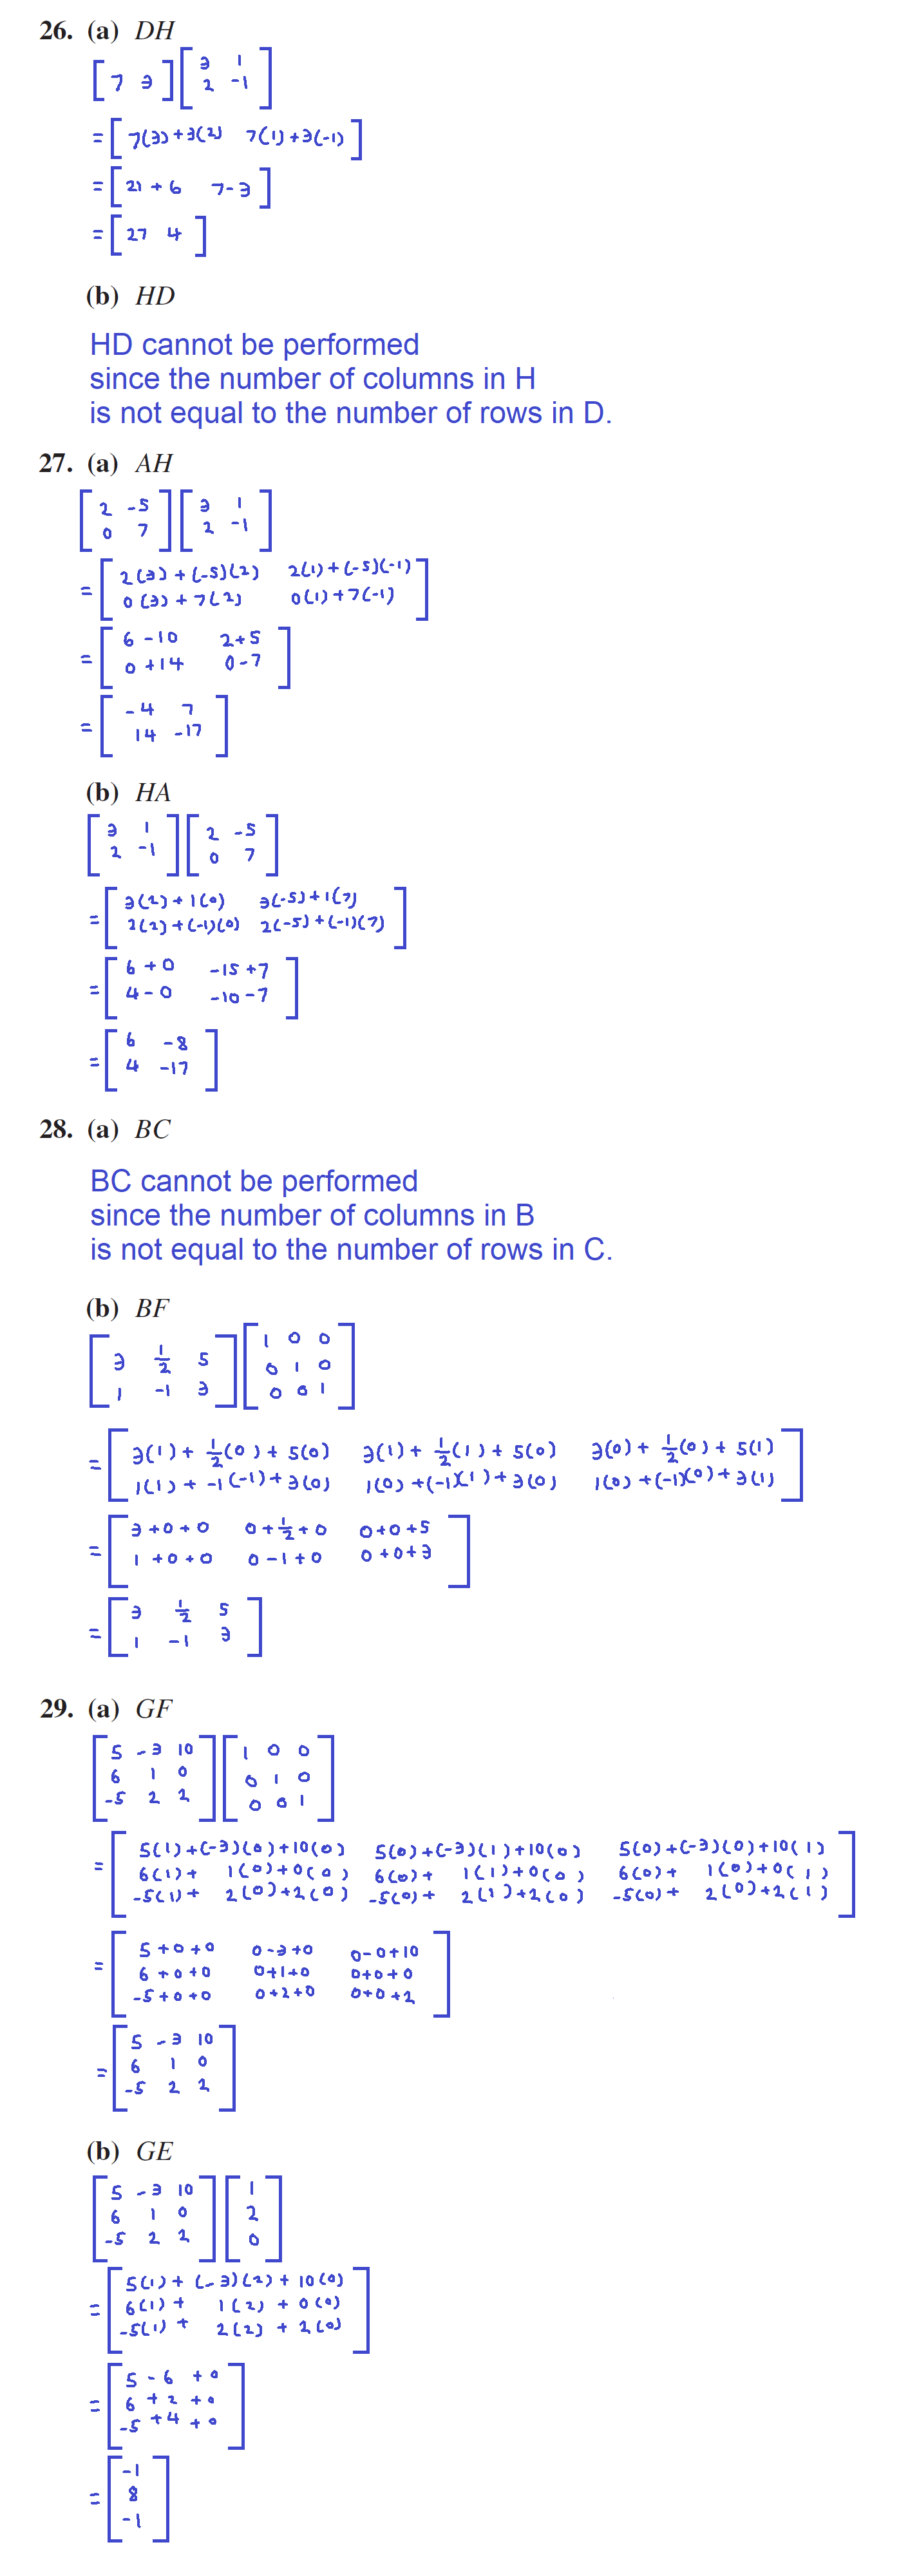 26. (a) DH
[7 3][3 1
2 -1]
= [7(3)+3(2) 7(1)+3(-1)]
= [21+6 7-3]
= [27 4]
(b) HD
HD cannot be performed
since the number of columns in H
is not equal to the number of rows in D.
27. (a) AH
[2 -5 3 1
0 7][2 -1]
= [2(3)+(-5)(2) 2(1)+(-5)(-1)
0(3)+7(2) 0(1)+7(-1)]
= [6-10 2+5
0+14 0-7]
= [-4 7
14 -17]
(b) HA
[3 1 2 -5
2 -1][0 7]
= [3(2)+1(0) 3(-5)+1(7)
2(2)+(-1)(0) 2(-5)+(-1)(7)]
= [6+0 -15+7
4-0 -10-7]
= [6 -8
4 -17]
28. (a) BC
BC cannot be performed
since the number of columns in B
is not equal to the number of rows in C.
(b) BF
[3 1/2 5
1 -1 3][1 0 0
0 1 0
0 0 1]
= [3(1)+1/2(0)+5(0) 3(1)+1/2(1)+5(0) 3(0)+1/2(0)+5(1)
1(1)+-1(-1)+3(0) 1(0)+(-1)(1)+3(0) 1(0)+(-1)(0)+3(1)]
= [3+0+0 0+1/2+0 0+0+5
1+0+0 0-1+0 0+0+3]
= [3 1/2 5
1 -1 3]
29. (a) GF
[5 -3 10 1 0 0
6 1 0 0 1 0
-5 2 2][0 0 1]
= [5(1)+(-3)(0)+10(0) 5(0)+(-3)(1)+10(0) 5(0)+(-3)(0)+10(1)
6(1)+1(0)+0(0) 6(0)+1(1)+0(0) 6(0)+1(0)+0(1)
-5(1)+2(0)+2(0) -5(0)+2(1)+2(0) -5(0)+2(0)+2(1)]
= [5+0+0 0-3+0 0-0+10
6+0+0 0+1+0 0+0+0
-5+0+0 0+2+0 0+0+2]
= [5 -3 10
6 1 0
-5 2 2]
(b) GE
[5 -3 10 1
6 1 0 2
-5 2 2][0]
= [5(1)+(-3)(2)+10(0)
6(1)+1(2)+0(0)
-5(1)+2(2)+2(0)]
= [5-6+0
6+2+0
-5+4+0]
= [-1
8
-1]